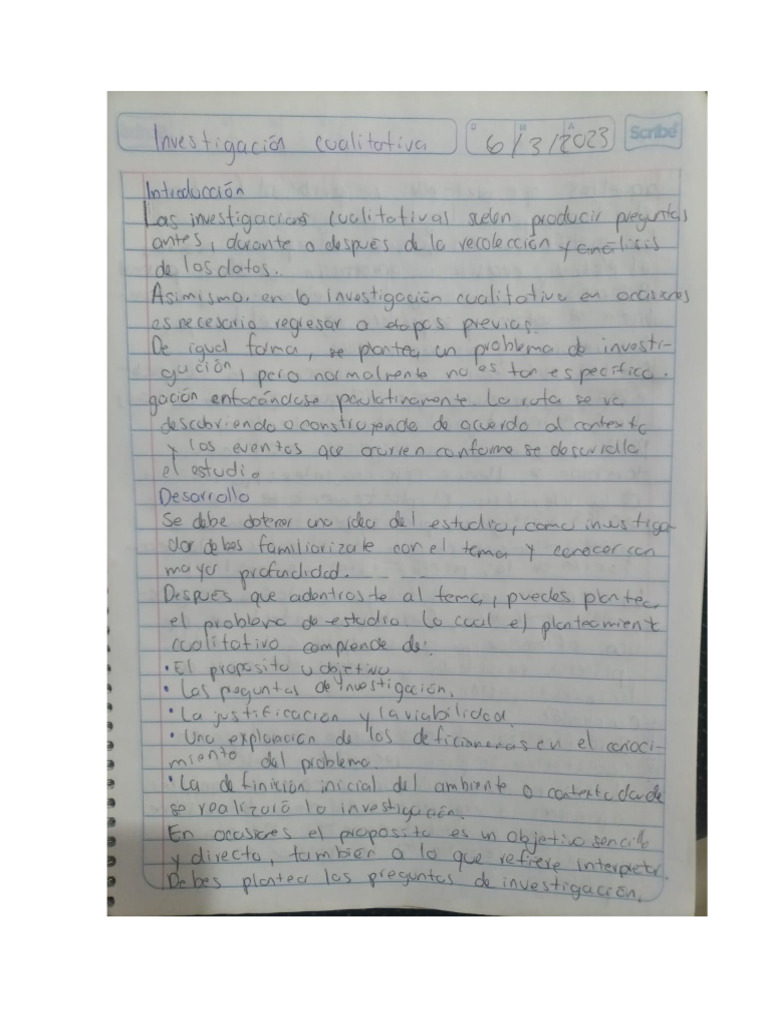 Investigación cualitativa
D M A
6/3/2023
Scribe
Introducción
Las investigaciones cualitativas suelen producir preguntas
antes, durante o después de la recolección y análisis
de los datos.
Asimismo, en la investigación cualitativa en ocasiones
es necesario regresar a etapas previas.
De igual forma, se plantea un problema de investi-
gación, pero normalmente no es tan específico.
gación enfocándose paulatinamente. La ruta se va
descubriendo o construyendo de acuerdo al contexto
y los eventos que ocurren conforme se desarrolla
el estudio
Desarrollo
Se debe obtener una idea del estudio, como investiga-
dor debes familiarizate con el tema y conocer con
mayor profundidad.
Después que adentraste al tema, puedes plantea
el problema de estudio lo cual el planteamient
cualitativo comprende de:
• El proposito u objetivo
• Las preguntas de investigación.
• La justificación y la viabilidad.
• Una exploración de las deficioneras en el conoci-
miento del problema.
• La definición inicial del ambiente o contexto donde
se realizará la investigación.
En ocasiones el proposito es un objetivo sencillo
y directo, también a lo que refiere interpretar.
Debes plantea las preguntas de investigación,